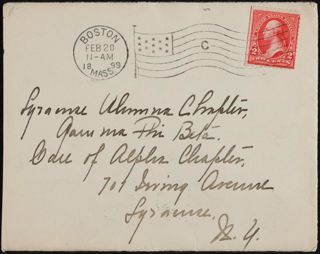 BOSTON
FEB 20
11-AM
18 99
MASS.
C
2 2
TWO CENTS
Syracuse Alumna Chapter,
Gamma Phi Beta.
Care of Alpha Chapter,
701 Irving Avenue
Syracuse.
N.Y.